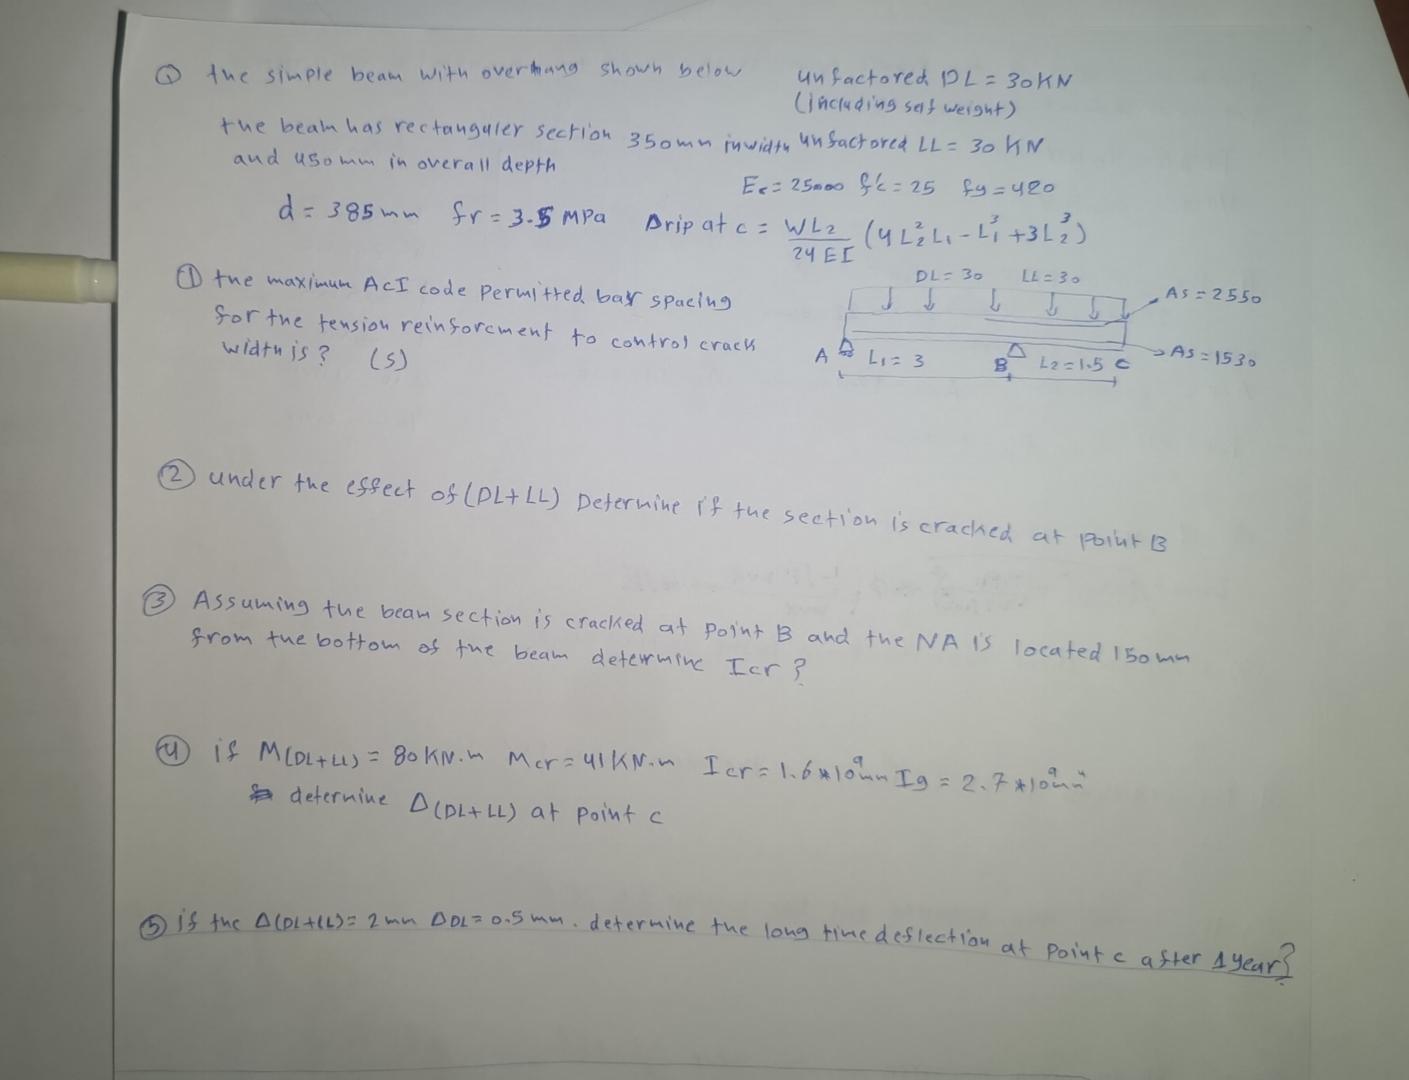 Q the simple beam with overhang shown below
unfactored DL = 30 KN
(including self weight)
the beam has rectanguler section 350mm in width
unfactored LL = 30 KN
and 450 mm in overall depth
Ec = 25000 f'c = 25 fy = 420
d = 385 mm fr = 3.5 MPa
Δrip at c = WL2/24EI (4L2²L1 - L1³ + 3L2³)
① the maximum ACI code permitted bar spacing
for the tension reinforcment to control crack
width is? (S)
DL = 30 LL = 30
As = 2550
A L1 = 3 B L2 = 1.5 C
As = 1530
② under the effect of (DL+LL) Determine if the section is cracked at point B
③ Assuming the beam section is cracked at point B and the NA is located 150 mm
from the bottom of the beam determine Icr?
④ if M(DL+LL) = 80 KN.m Mcr = 41 KN.m Icr = 1.6*10⁹mm Ig = 2.7*10⁹mm⁴
determine Δ(DL+LL) at point c
⑤ if the Δ(DL+LL) = 2 mm ΔDL = 0.5 mm. determine the long time deflection at point c after 1 year?